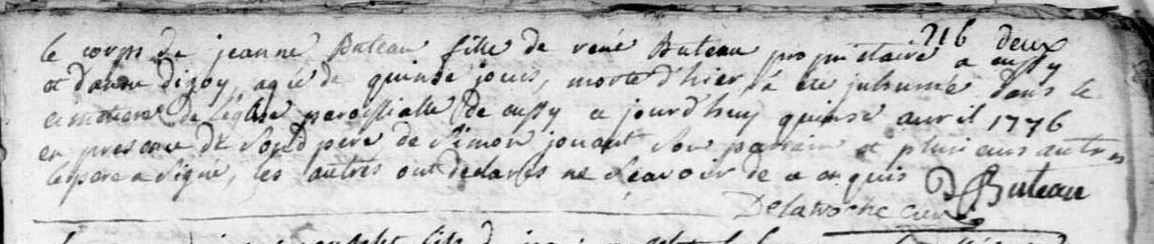 216 deux
le corps de jeanne Buteau fille de rené Buteau propriétaire a cussy
et d'anne digoy, agée de quinse jours, morte d'hier, a été inhumé dans le
cimetiere de l'église paroissialle de cussy ce jourd'huy quinse avril 1776
en presence de sond pere de Simon jouant son parrain et plusieurs autres
le pere a signé, les autres ont declarés ne sçavoir de ce enquis Buteau
Delaroche curé